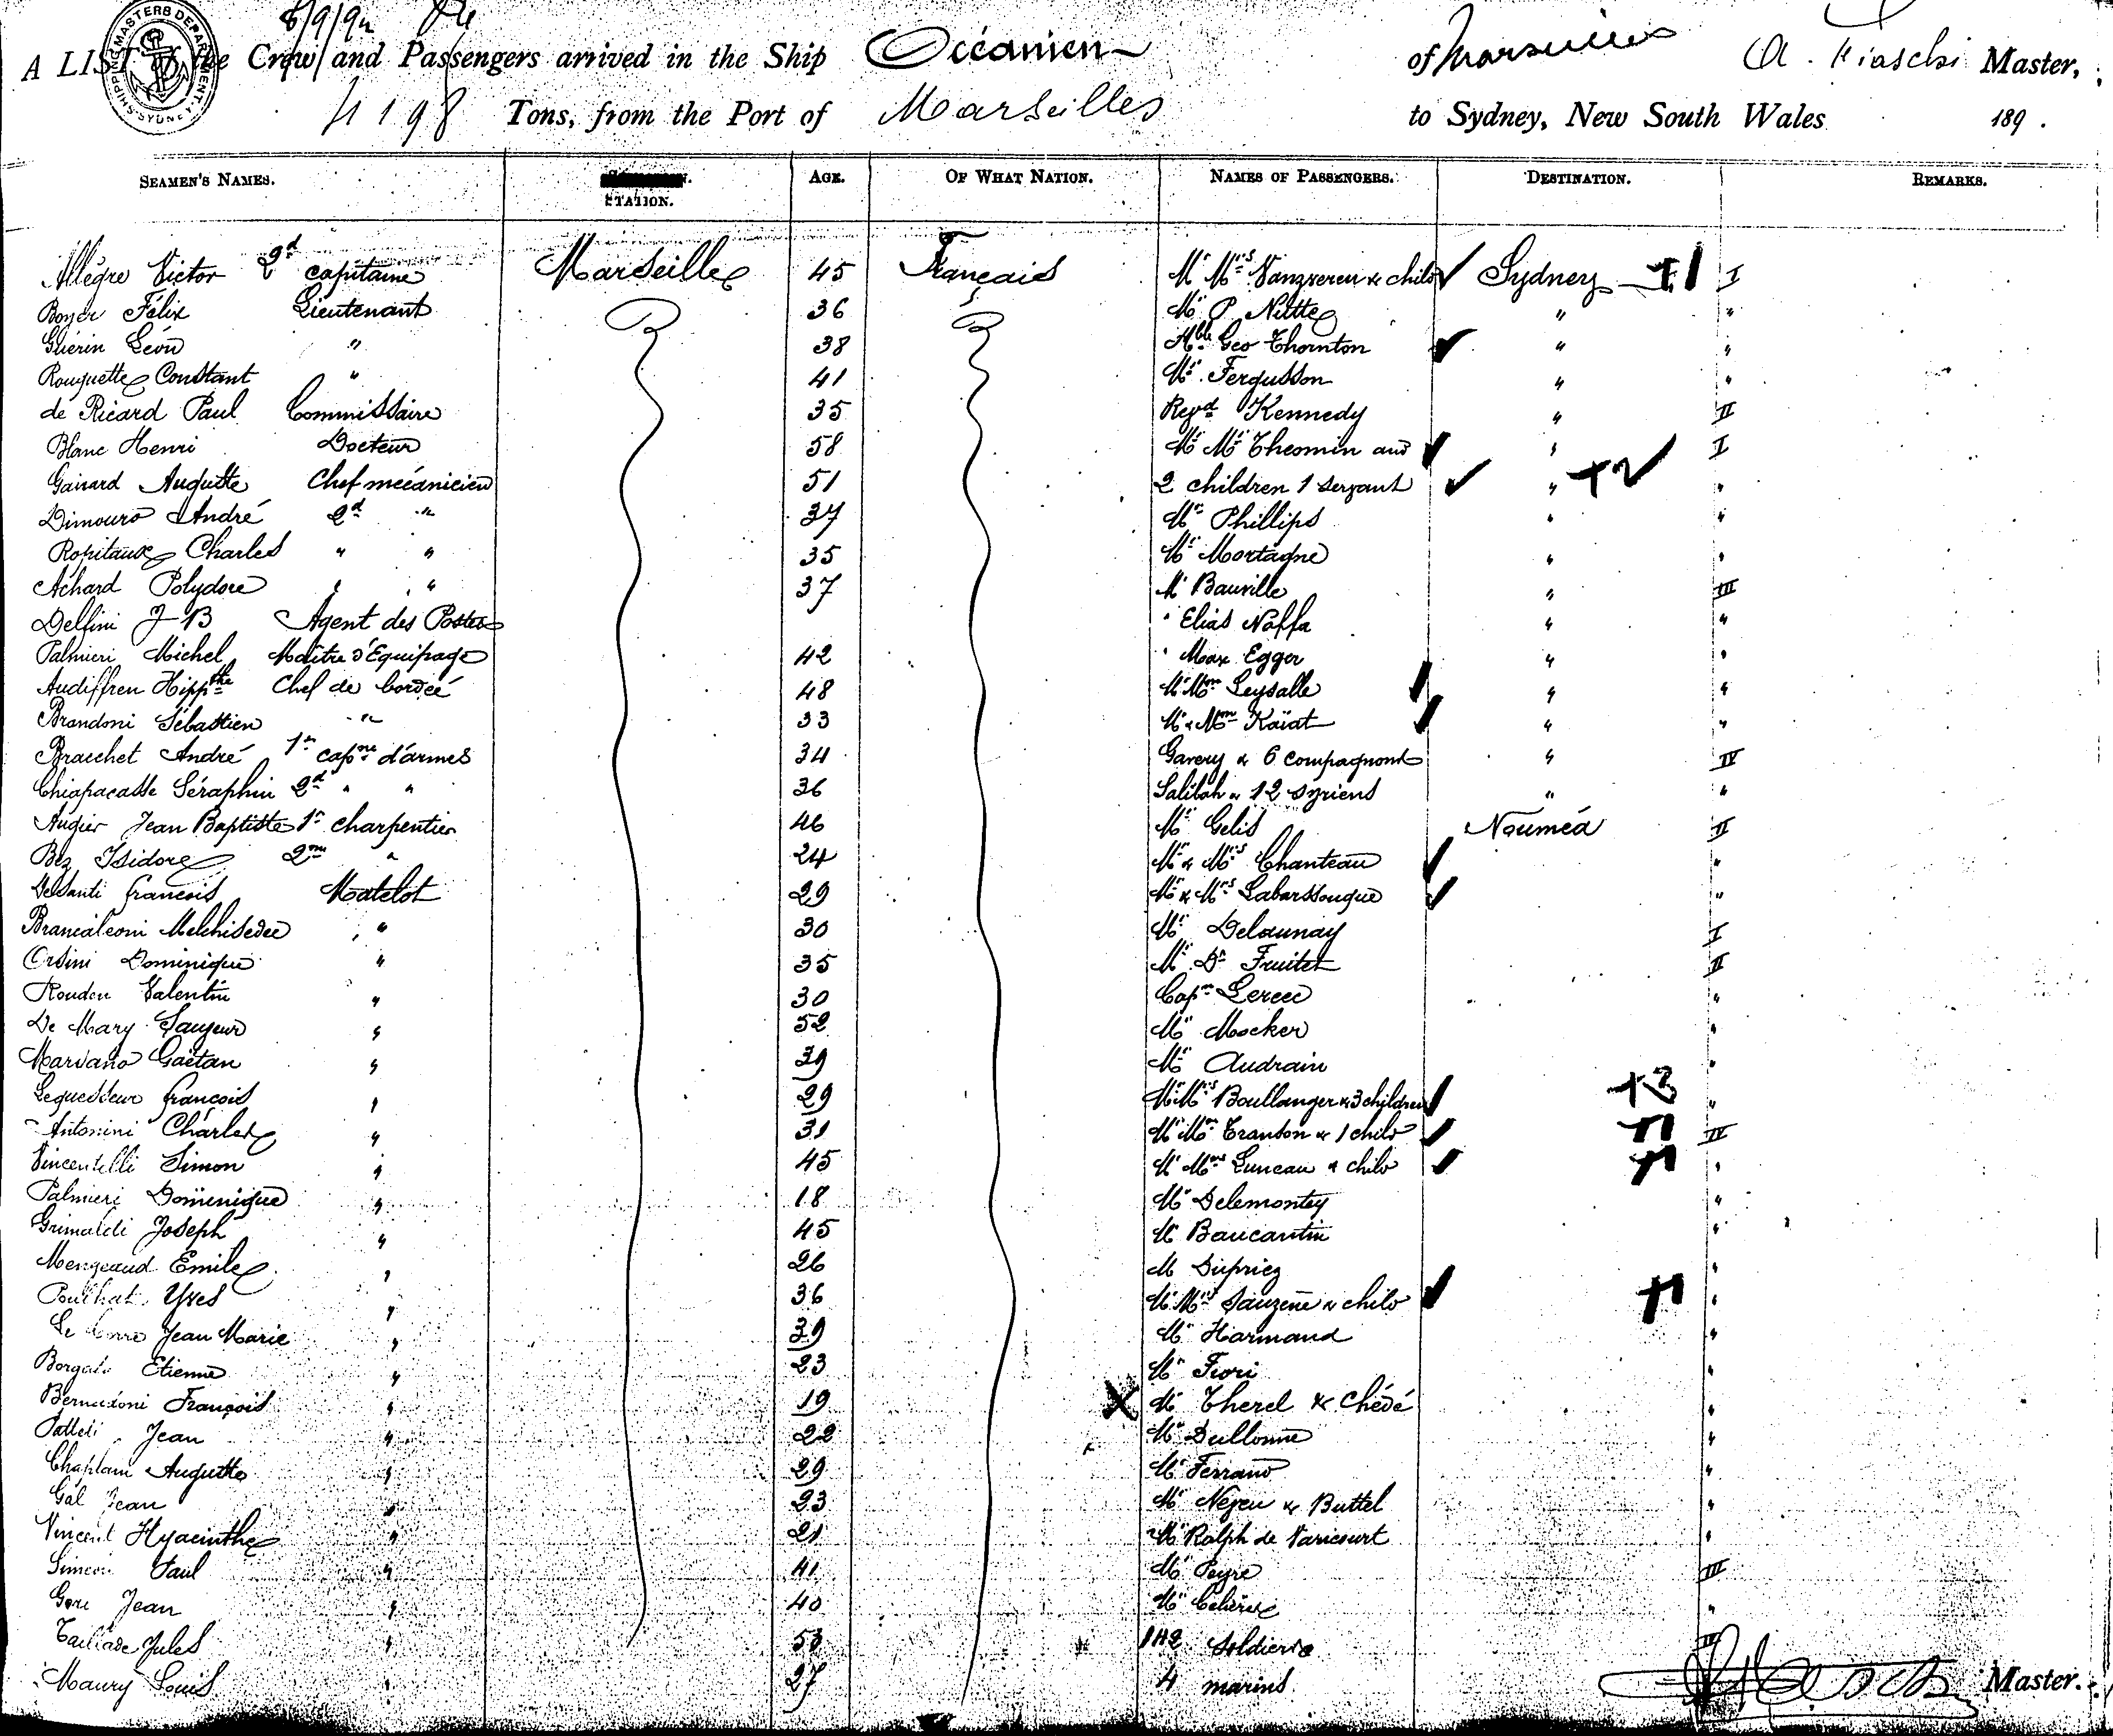 8/9/92
SHIPPING MASTERS DEPARTMENT SYDNEY
A LIST of the Crew and Passengers arrived in the Ship Océanien of Marseilles A. Fiaschi Master,
4198 Tons, from the Port of Marseilles to Sydney, New South Wales 189 .
SEAMEN'S NAMES. STATION. AGE. OF WHAT NATION. NAMES OF PASSENGERS. DESTINATION. REMARKS.
Allègre Victor 2d capitaine Marseille 45 Français Mr Mrs & child Sydney +1 I
Boyer Félix Lieutenant 36 Mr P. Nitte " "
Guérin Léon " 38 Hble Geo Thornton " "
Rouquette Constant " 41 Mr Fergusson " "
de Ricard Paul Commissaire 35 Revd Kennedy " II
Blanc Henri Docteur 58 Mr Mrs Theomin and " I
Gairard Auguste Chef mécanicien 51 2 children 1 servant " +2 "
Dimouro André 2d " 37 Mr Phillips " "
Ropitaux Charles " " 35 Mr Mortagne " "
Achard Polydore " " 37 Mr Bauville " III
Delfini J-B Agent des Postes " Elias Naffa " "
Palmieri Michel Maître d'Equipage 42 " Max Egger " "
Audiffren Hippthe Chef de bordée 48 Mr Mme Leysalle " "
Brandoni Sébastien " 33 Mr & Mme Kaïat " "
Braechet André 1er capne d'armes 34 Gavery & 6 compagnons " IV
Chiapacasse Séraphin 2d " " 36 Salibah & 12 syriens " "
Augier Jean Baptiste 1er charpentier 46 Mr Gelis Nouméa II
Bez Isidore 2me " 24 Mr & Mrs Chanteau "
Desanti François Matelot 29 Mr & Mrs Labarssouque "
Brancaleoni Melchisedec " 30 Mr Delaunay I
Orsini Dominique " 35 Mr Dr Fruitet II
Rouden Valentin " 30 Capne Lerec "
De Mary Sauveur " 52 Mr Mocker "
Marsano Gaëtan " 39 Mr Audrain "
Lequesseur François " 29 Mr Mrs Boullanger & 3 children +3 "
Antonini Charles " 31 Mr Mme Transon & 1 child +1 IV
Vincentelli Simon " 45 Mr Mme Luneau & child +1 "
Palmieri Dominique " 18 Mr Delemontey "
Grimaldi Joseph " 45 Mr Baucantin "
Mengeaud Emile " 26 Mr Dupriez "
Poulhat Yves " 36 Mr Mrs Sauzène & child +1 "
Le Jean Marie " 39 Mr Harmand "
Etienne " 23 Mr Fiori "
Bernardoni François " 19 X Mr Therel & Chédé "
Jean " 22 Mr Dullonne "
Chaplain Auguste " 29 Mr Ferrand "
Gal Jean " 23 Mr Neveu & Buttel "
Vincent Hyacinthe " 21 Mr Ralph de Varicourt "
Simeon Paul " 41 Mr Peyre III
Gori Jean " 40 Mr "
Tailiade Jules " 53 142 soldiers IV
Maury Louis " 27 4 marins
Master.